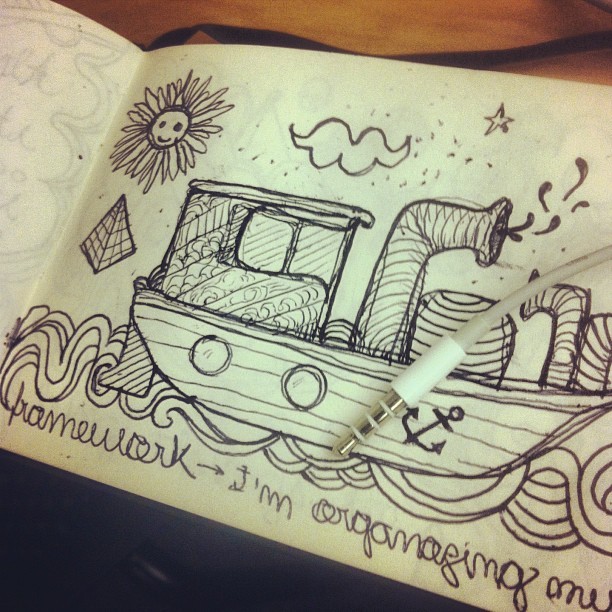 framework → I'm organazing my